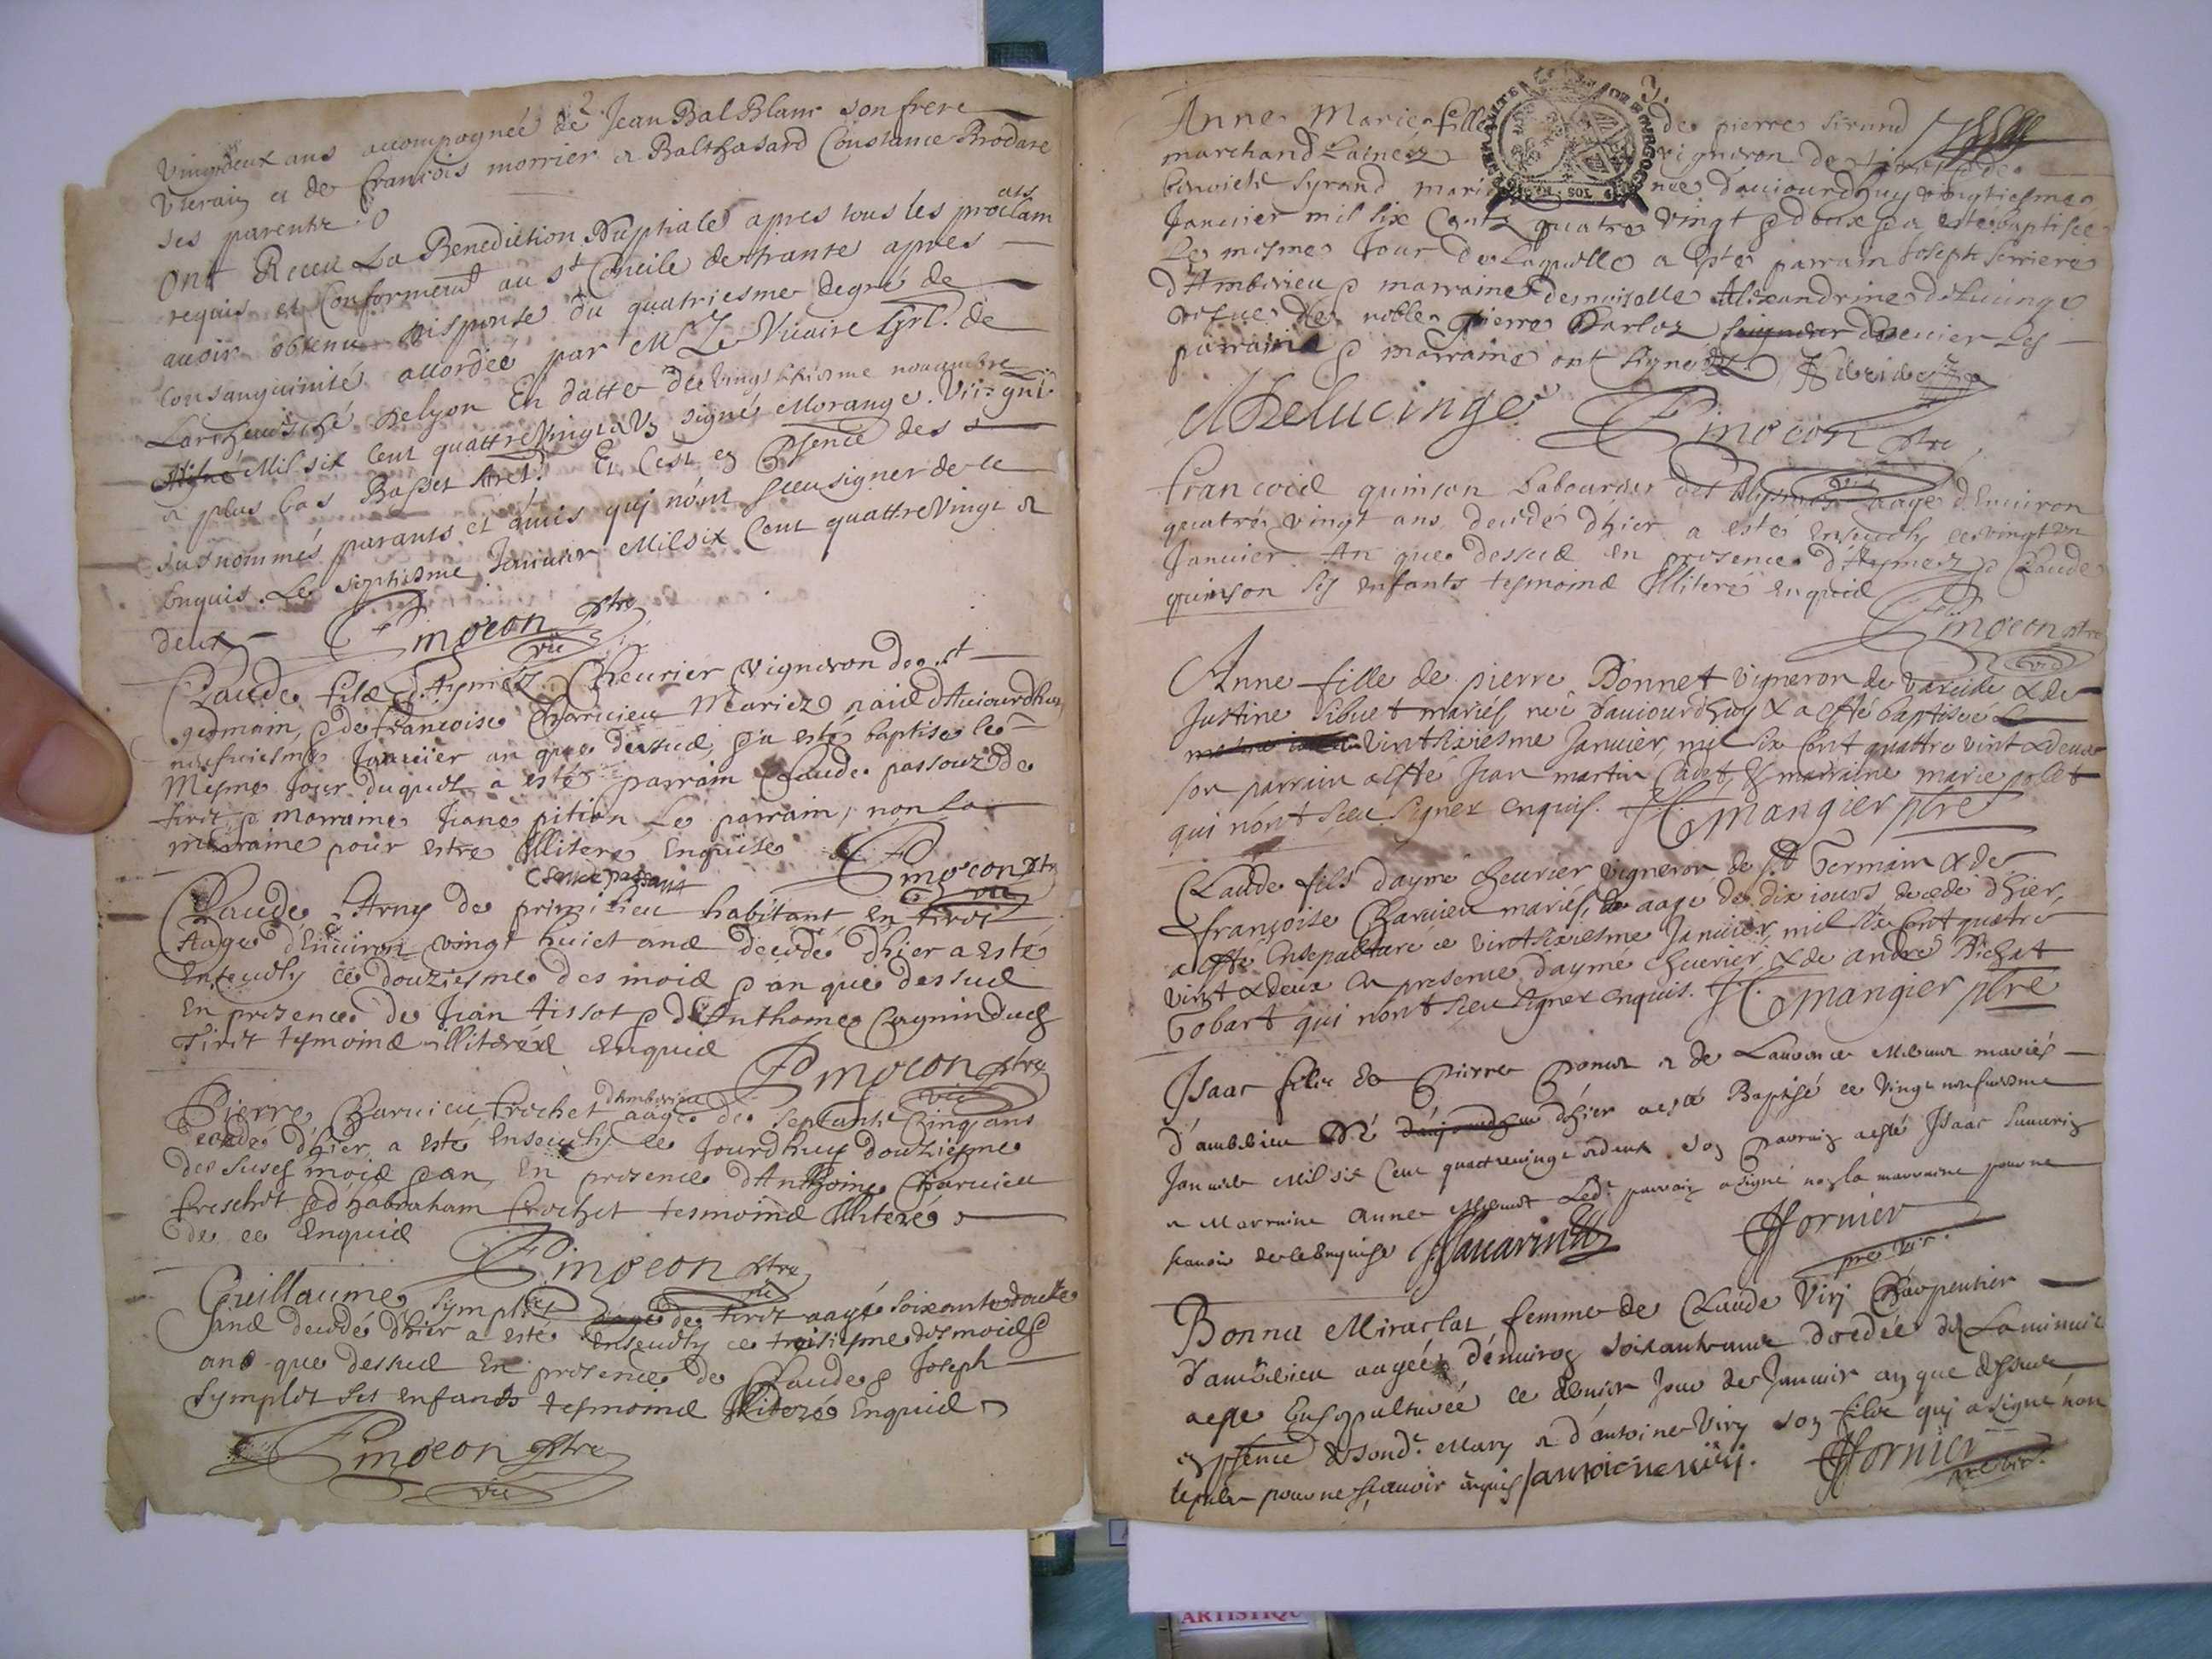 2.
vingt deux ans accompagnée de Jean Bal Blanc son frere
uterain et de francois morrier & Balthasard Constance Brodare
ses parents.
Ont Receu La Benediction Nuptiale apres tous les proclam
ats
requis et Conformemt au St Concile de trante apres
auoir obtenu dispense du quatriesme degré de
Consanguinité accordée par Mr Le Vicaire de
Larcheuesché de lyon En datte du vingt nouambre
Mil six Cent quattre vingt & Vn signé Morange. Vic: gnl
& plus bas Basset Et Cest en Psence des
susnommés parants et amis quj nónt sceu signer de ce
Enquis. Le septiesme Januier Mil six Cent quattre vingt &
deux
Pingeon Ptre
vic
Claude filz Aymez Cheurier vigneron de st
germain, & de francoise Charuieu Mariez naiz d'Auiourdhuy
neufuiesme Januier an que dessuz, & a esté baptisé le
Mesme Jour duquel a esté parrain Claude passouz de
tiret, & marraine Jane pition Le parrain, non la
marraine pour estre Illitere Enquise
Pingeon Ptre
vic
Claude Arny de primilieu habitant en tiret
Aagé d'Enuiron vingt huict anz decedé dhier a esté
Enseuely ce douziesme des moiz & an que dessuz
En presence de Jean tissot & d'Anthome Cagnin dud
Tiret tesmoinz illiteréz Enquiz
Pingeon Ptre
vic
Pierre Charuieu Crochet d'Amberieu aagé de septante Cinq ans
decedé d'hier a esté Enseuely ce Jourdhuy douziesme
des susd moiz & an, En presence d'Anthoine Charuieu
Creschet & d'habraham Crochet tesmoinz Illiteré
de ce Enquiz
Pingeon Ptre
vic
Guillaume Symplet de tiret aagé soixante douze
anz decedé d'hier a esté Enseuely ce treisiesme des moiz &
ans que dessuz En presence de Claude & Joseph
Symplet ses enfants tesmoinz Illiteré Enquiz
Pingeon Ptre
vic
3.
Anne Marie fille de pierre Sirand
marchand Laineéz vigneron de tiret & de
benoiete Syrand mariéz née d'auiourdhuy vingtiesme
Januier mil six Centz quatre vingt & deux & a esté baptisée
Le mesme Jour de Laquelle a esté parrain Joseph serriere
d'Amberieu & marraine desmoiselle Alexandrine deLucinge
vefue de noble pierre Darloz Les
parrain & marraine ont signe
A Delucinge
Pingeon Ptre
vic
francoiz quinson Labourdur aagé d'Enuiron
quatre vingt ans decedé dhier a esté Enseuely ce vingt vn
Januier An que dessuz en presence d'Aymez & Claude
quinson ses enfants tesmoinz Illiteré enquiz
Pingeon Ptre
vic
Anne fille de pierre Bonnet vigneron de vareilie & de
Justine Sibuet mariés, neé d'auiourdhuy & a esté baptisée le
vint sixiesme Januier, mil six cent quattre vint & deux
son parrain a esté Jean martin Cadet, & marraine marie polet
qui nont sceu signer enquis. Mangier ptre
Claude fils d'aymé cheurier vigneron de St Germain & de
françoise Charuieu mariés, aagé de dix iours decedé d'hier,
a esté ensepulturé ce vint sixiesme Januier, mil six cent quatre
vint & deux en presence d'aymé cheurier, & de andré Pichat
Gobart qui nont sceu signer enquis. Mangier ptre
Isaac filz de Pierre Poncet & de Laurence Milliunt mariés
d'ambérieu Né dhier a esté Baptisé ce vingt neufuiesme
Januier Mil six Cent quattreuingt & deux. son parrain a esté Isaac Sauarin
& Marraine Anne Milliunt Led. parrain a signé non la marraine pour ne
scauoir de ce Enquise J Sauarin J Fornier
pre vic.
Bonna Miraclat femme de Claude Virj Charpentier
d'ambérieu aageé d'énuiron soixant ans decedée de La minuit
a esté Ensepulturée ce dernier Jour de Januier an que dessus
en psence de sond. Mary & d'antoine Viry son filz quj a signé non
le pere pour ne scauoir enquis antoine virj. J Fornier
pre vic.
ARTISTIQU